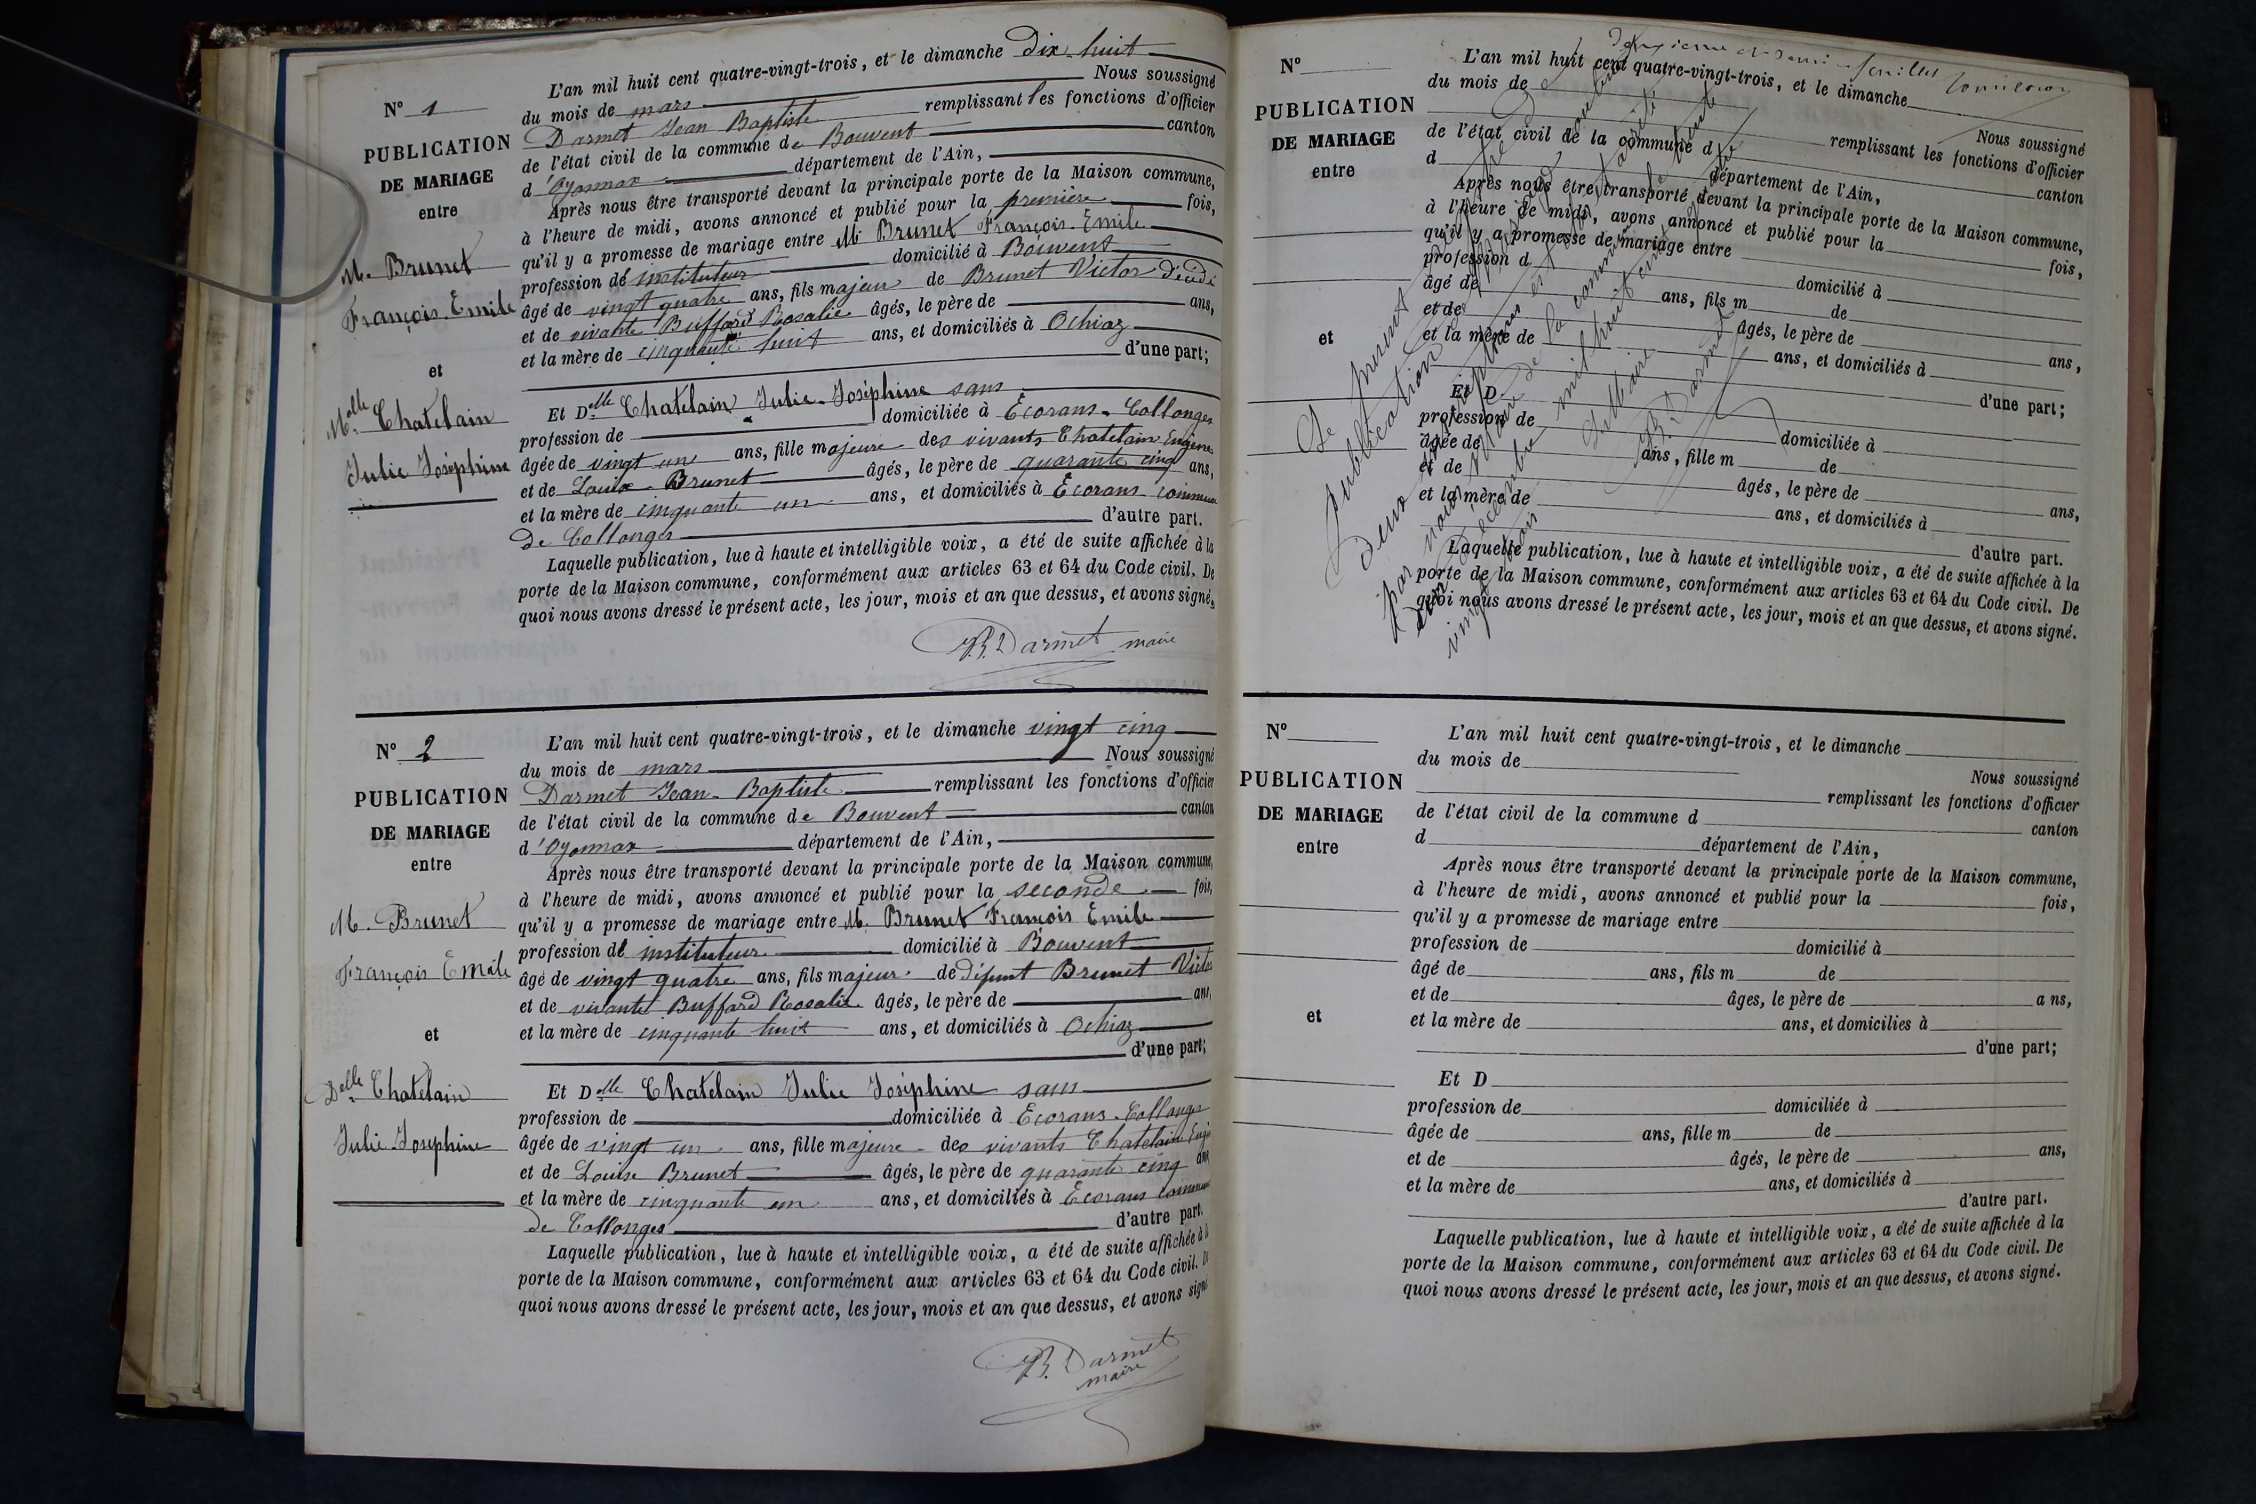 N° 1
PUBLICATION
DE MARIAGE
entre
M. Brunet
François Emile
et
Melle Chatelain
Julie Joséphine
L'an mil huit cent quatre-vingt-trois, et le dimanche Dix huit
du mois de mars Nous soussigné
Darmet Jean Baptiste remplissant les fonctions d'officier
de l'état civil de la commune de Bouvent canton
d'Oyonnax département de l'Ain,
Après nous être transporté devant la principale porte de la Maison commune,
à l'heure de midi, avons annoncé et publié pour la première fois,
qu'il y a promesse de mariage entre M. Brunet François Emile
profession de instituteur domicilié à Bouvent
âgé de vingt quatre ans, fils majeur de Brunet Victor décédé
et de vivante Buffard Rosalie âgés, le père de ans,
et la mère de cinquante huit ans, et domiciliés à Ochiaz
d'une part;
Et Delle Chatelain Julie Joséphine sans
profession de domiciliée à Ecorans Collonges
âgée de vingt un ans, fille majeure des vivants Chatelain Eugène
et de Louise Brunet âgés, le père de quarante cinq ans,
et la mère de cinquante un ans, et domiciliés à Ecorans commune
de Collonges d'autre part.
Laquelle publication, lue à haute et intelligible voix, a été de suite affichée à la
porte de la Maison commune, conformément aux articles 63 et 64 du Code civil. De
quoi nous avons dressé le présent acte, les jour, mois et an que dessus, et avons signé.
JB. Darmet maire
N° 2
PUBLICATION
DE MARIAGE
entre
M. Brunet
François Emile
et
Delle Chatelain
Julie Josephine
L'an mil huit cent quatre-vingt-trois, et le dimanche vingt cinq
du mois de mars Nous soussigné
Darmet Jean Baptiste remplissant les fonctions d'officier
de l'état civil de la commune de Bouvent canton
d'Oyonnax département de l'Ain,
Après nous être transporté devant la principale porte de la Maison commune,
à l'heure de midi, avons annoncé et publié pour la seconde fois,
qu'il y a promesse de mariage entre M. Brunet François Emile
profession de instituteur domicilié à Bouvent
âgé de vingt quatre ans, fils majeur de défunt Brunet Victor
et de vivante Buffard Rosalie âgés, le père de ans,
et la mère de cinquante huit ans, et domiciliés à Ochiaz
d'une part;
Et Delle Chatelain Julie Joséphine sans
profession de domiciliée à Ecorans Collonges
âgée de vingt un ans, fille majeure des vivants Chatelain
et de Louise Brunet âgés, le père de quarante cinq ans
et la mère de cinquante un ans, et domiciliés à Ecorans commune
de Collonges d'autre part.
Laquelle publication, lue à haute et intelligible voix, a été de suite affichée à la
porte de la Maison commune, conformément aux articles 63 et 64 du Code civil. D
quoi nous avons dressé le présent acte, les jour, mois et an que dessus, et avons signé
JB. Darmet
maire
N°
PUBLICATION
DE MARIAGE
entre
et
L'an mil huit cent quatre-vingt-trois, et le dimanche
du mois de
Nous soussigné
remplissant les fonctions d'officier
de l'état civil de la commune d
canton
d département de l'Ain,
Après nous être transporté devant la principale porte de la Maison commune,
à l'heure de midi, avons annoncé et publié pour la fois,
qu'il y a promesse de mariage entre
profession d domicilié à
âgé de ans, fils m de
et de âgés, le père de ans,
et la mère de ans, et domiciliés à
d'une part;
Et D
profession de domiciliée à
âgée de ans, fille m de
et de âgés, le père de ans,
et la mère de ans, et domiciliés à
d'autre part.
Laquelle publication, lue à haute et intelligible voix, a été de suite affichée à la
porte de la Maison commune, conformément aux articles 63 et 64 du Code civil. De
quoi nous avons dressé le présent acte, les jour, mois et an que dessus, et avons signé.
Le présent registre
publication
deux
par nous Maire de la commune
décembre mil huit cent
vingt trois
Le Maire
JB. Darmet
N°
PUBLICATION
DE MARIAGE
entre
et
L'an mil huit cent quatre-vingt-trois, et le dimanche
du mois de
Nous soussigné
remplissant les fonctions d'officier
de l'état civil de la commune d
canton
d département de l'Ain,
Après nous être transporté devant la principale porte de la Maison commune,
à l'heure de midi, avons annoncé et publié pour la fois,
qu'il y a promesse de mariage entre
profession de domicilié à
âgé de ans, fils m de
et de âges, le père de ans,
et la mère de ans, et domicilies à
d'une part;
Et D
profession de domiciliée à
âgée de ans, fille m de
et de âgés, le père de ans,
et la mère de ans, et domiciliés à
d'autre part.
Laquelle publication, lue à haute et intelligible voix, a été de suite affichée à la
porte de la Maison commune, conformément aux articles 63 et 64 du Code civil. De
quoi nous avons dressé le présent acte, les jour, mois et an que dessus, et avons signé.